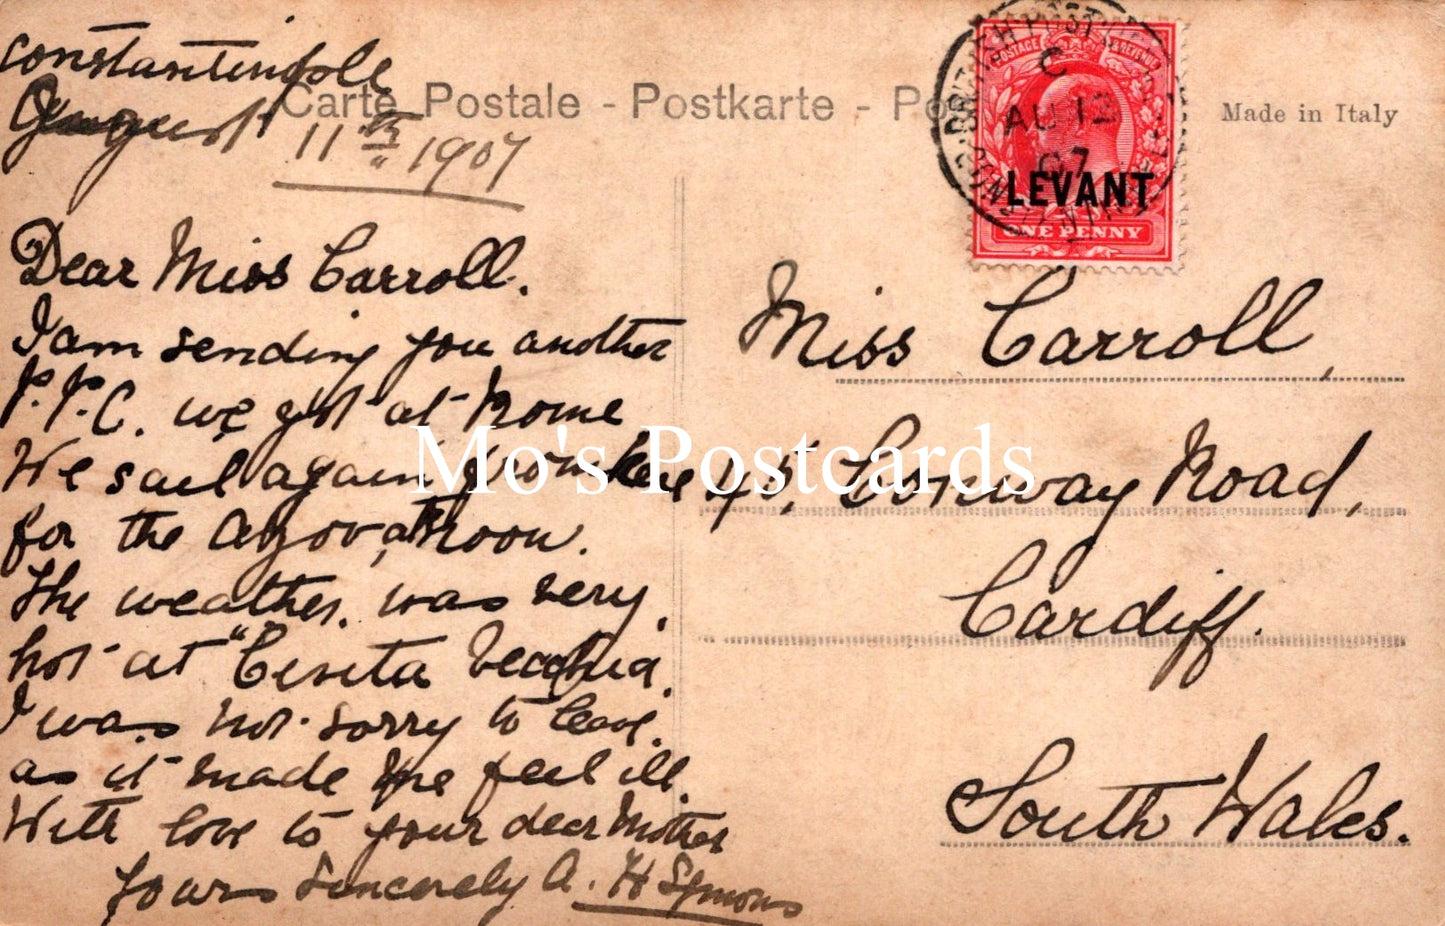 Constantinople
August 11th 1907
Carte Postale - Postkarte - Po
Made in Italy
POSTAGE & REVENUE
BRITISH POST
C
AU 12
07
LEVANT
ONE PENNY
Dear Miss Carroll.
I am sending you another
P.P.C. we got at Rome
We sail again from here
for the Azov, at noon.
The weather. was very.
hot at "Civita Vecchia.
I was not sorry to leave.
as it made me feel ill.
With love to your dear Mother
Yours Sincerely A. H Symons
Miss Carroll,
45, Conway Road,
Cardiff.
South Wales.
Mo's Postcards